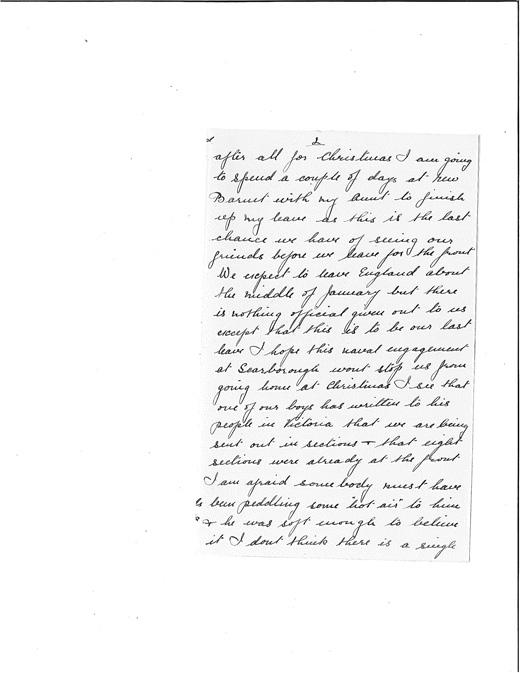 2
after all for Christmas I am going
to spend a couple of days at New
Barnet with my Aunt to finish
up my leave as this is the last
chance we have of seeing our
friends before we leave for the front
We expect to leave England about
the middle of January but there
is nothing official given out to us
except that this is to be our last
leave I hope this naval engagement
at Scarborough wont stop us from
going home at Christmas I see that
one of our boys has written to his
people in Victoria that we are being
sent out in sections + that eight
sections were already at the front
I am afraid somebody must have
been peddling some "hot air" to him
+ he was soft enough to believe
it I dont think there is a single